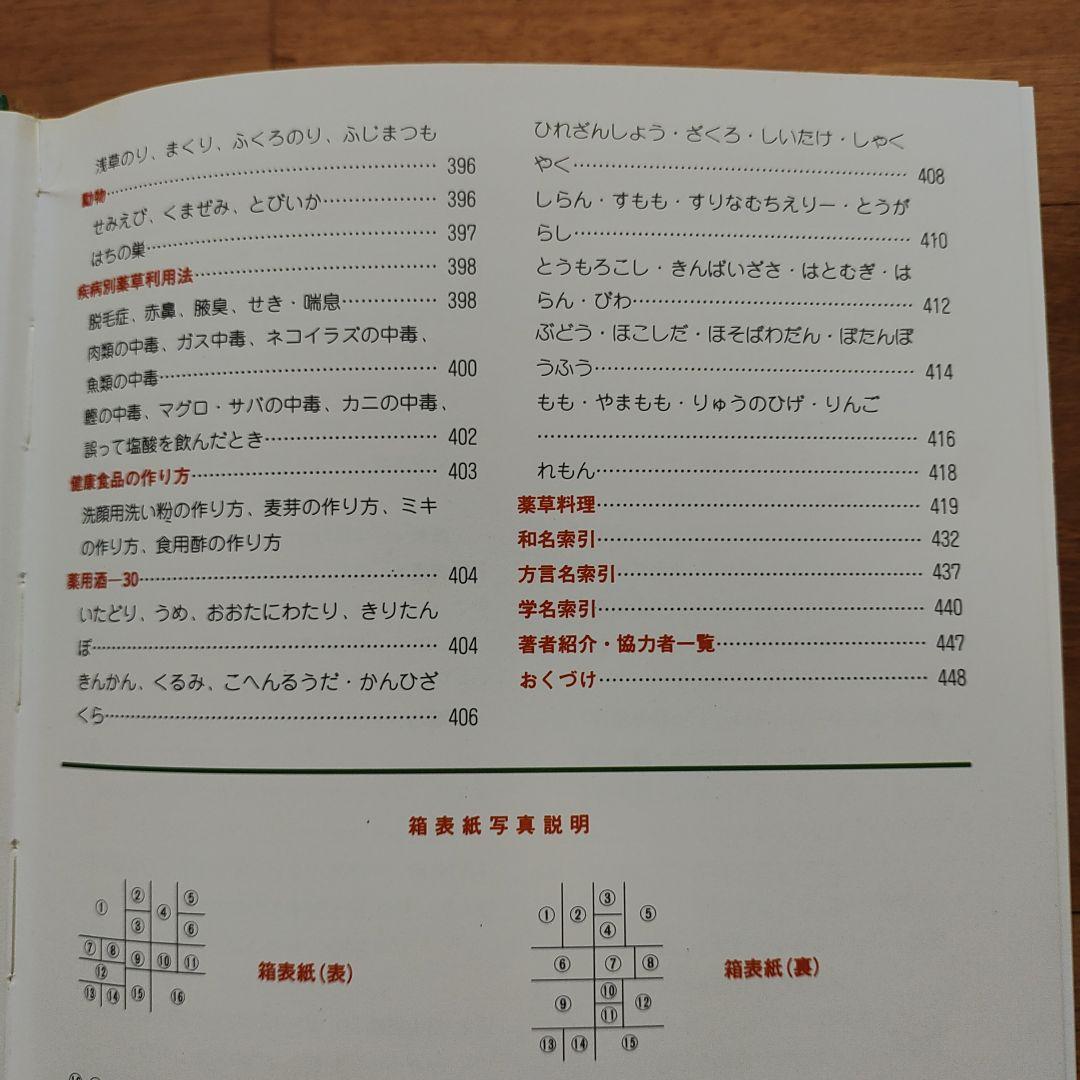 浅草のり、まくり、ふくろのり、ふじまつも
……………………………………… 396
動物……………………………………… 396
せみえび、くまぜみ、とびいか………………… 396
はちの巣……………………………………… 397
疾病別薬草利用法……………………………… 398
脱毛症、赤鼻、腋臭、せき・喘息……………… 398
肉類の中毒、ガス中毒、ネコイラズの中毒、
魚類の中毒……………………………………… 400
鰹の中毒、マグロ・サバの中毒、カニの中毒、
誤って塩酸を飲んだとき………………………… 402
健康食品の作り方……………………………… 403
洗顔用洗い粉の作り方、麦芽の作り方、ミキ
の作り方、食用酢の作り方
薬用酒―30……………………………………… 404
いたどり、うめ、おおたにわたり、きりたん
ぽ……………………………………… 404
きんかん、くるみ、こへんるうだ・かんひざ
くら……………………………………… 406
ひれざんしよう・ざくろ・しいたけ・しゃく
やく……………………………………… 408
しらん・すもも・すりなむちえりー・とうが
らし……………………………………… 410
とうもろこし・きんばいざさ・はとむぎ・は
らん・びわ……………………………………… 412
ぶどう・ほこしだ・ほそばわだん・ぼたんぼ
うふう……………………………………… 414
もも・やまもも・りゅうのひげ・りんご
……………………………………… 416
れもん……………………………………… 418
薬草料理……………………………………… 419
和名索引……………………………………… 432
方言名索引……………………………………… 437
学名索引……………………………………… 440
著者紹介・協力者一覧………………………… 447
おくづけ……………………………………… 448
箱表紙写真説明
① ② ③ ④ ⑤ ⑥
⑦ ⑧ ⑨ ⑩ ⑪
⑫
⑬ ⑭ ⑮ ⑯
箱表紙(表)
① ② ③ ④ ⑤
⑥ ⑦ ⑧
⑨ ⑩ ⑪ ⑫
⑬ ⑭ ⑮
箱表紙(裏)